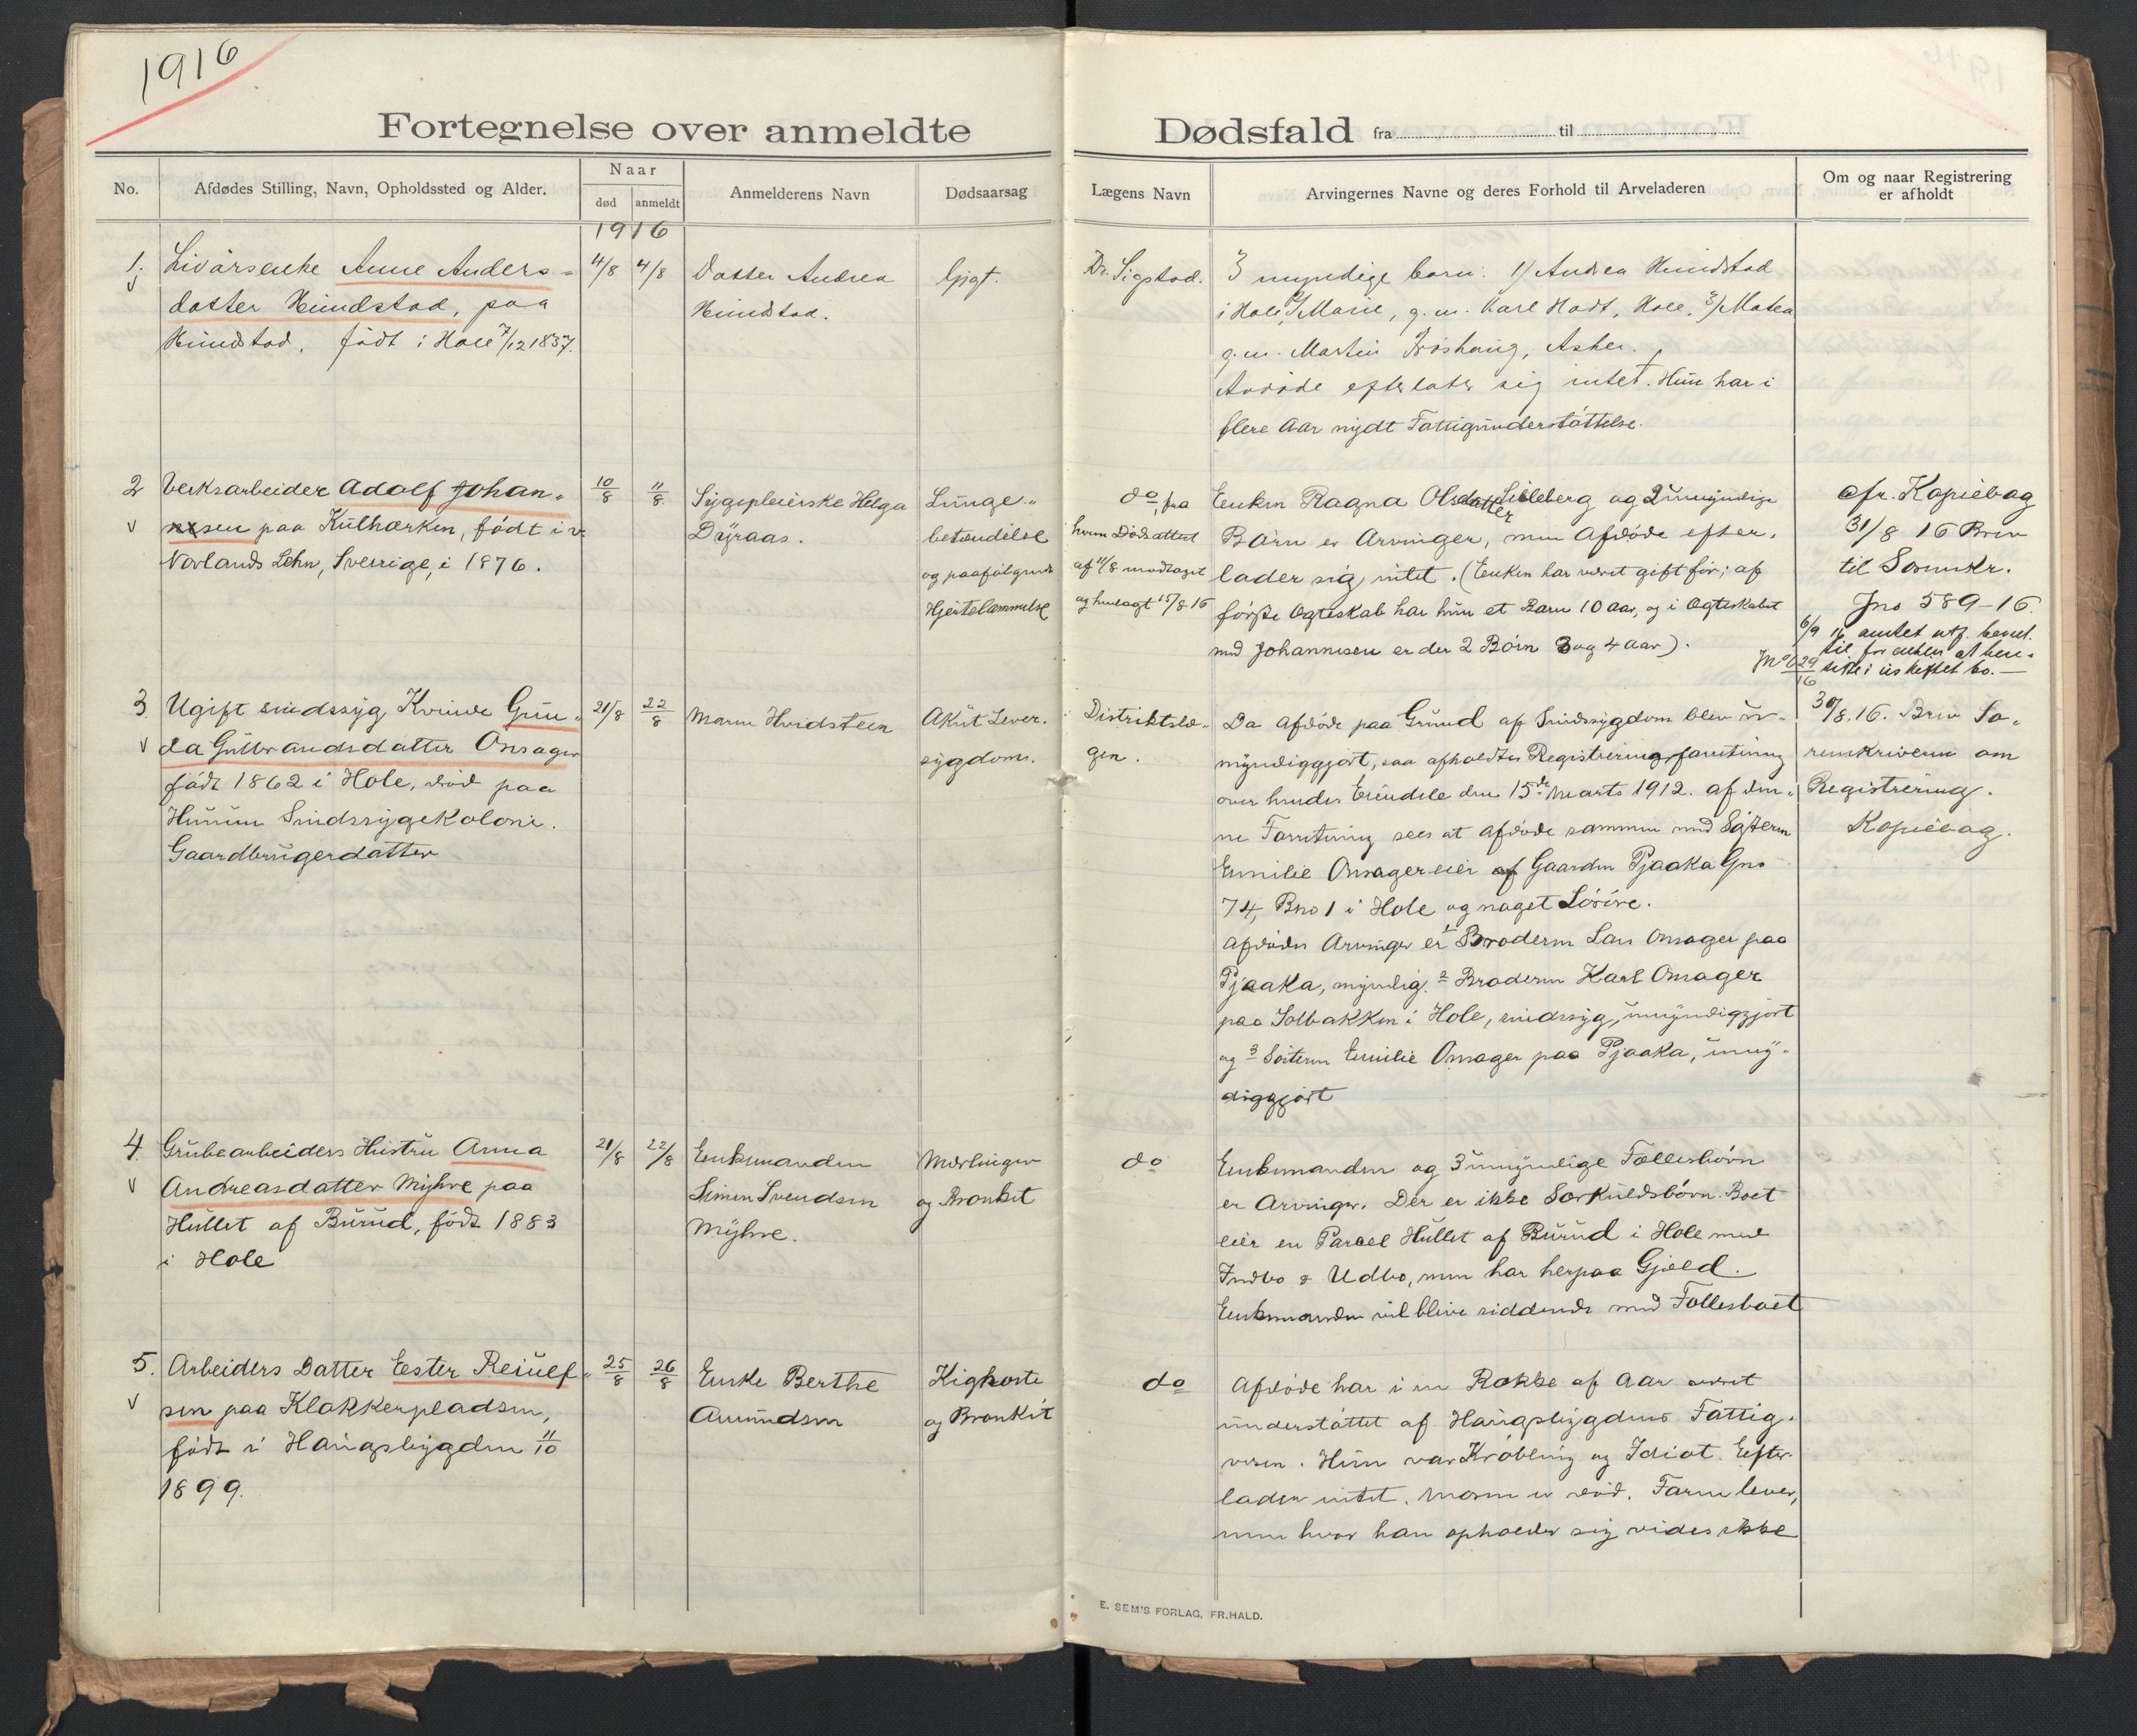 1916
Fortegnelse over anmeldte Dødsfald fra til
No.
Afdødes Stilling, Navn, Opholdssted og Alder.
Naar
død
anmeldt
Anmelderens Navn
Dødsaarsag
Lægens Navn
Arvingernes Navne og deres Forhold til Arveladeren
Om og naar Registrering
er afholdt
1916
1.
Livørsenke Anne Anders-
datter Hundstad, paa
Hundstad, født i Hole 7/12 1837.
4/8
4/8
Datter Andrea
Hundstad.
Gigt.
Dr. Sigstad.
3 myndige barn: 1/ Andrea Hundstad
i Hole, 2/ Marie, g.m. Karl Hodt, Hole, 3/ Matea
g.m. Martin Frøshaug, Asker.
Avdøde efterlater sig intet. Hun har i
flere Aar nydt Fattigunderstøttelse.
2
Verksarbeider Adolf Johan-
nesen paa Kulhærken, født i
Norlands Lehn, Sverrige, i 1876.
10/8
11/8
Sygepleierske Helga
Dyraas.
Lunge-
betændelse
og paafølgende
Hjertelammelse
do, fra
hvem Dødsattest
af 11/8 modtaget
og henlagt 15/8 16
Enken Ragna Olsdatter Lilleberg og 2 umyndige
Børn er Arvinger, men Afdøde efter-
lader sig intet. (Enken har været gift før; af
første Ægteskab har hun et Barn 10 Aar, og i Ægteskabet
med Johannesen er der 2 Børn 3 og 4 Aar).
cfr. Kopiebog
31/8 16 Brev
til Sorenskr.
Jno 589-16.
6/9 16 amtet utf. bevil.
til for enken at hen-
Jno 629/16 sitte i uskiftet bo.
3.
Ugift sindssyg Kvinde Gun-
da Gulbrandsdatter Onsager
født 1862 i Hole, død paa
Hurum Sindssygekoloni.
Gaardbrugerdatter
21/8
22/8
Maren Hvidsteen
Akut Lever-
sygdom.
Distriktslæ-
gen.
Da Afdøde paa Grund af Sindssygdom blev u-
myndiggjort, saa afholdtes Registreringsforretning
over hendes Eiendele den 15de Marts 1912. af den-
ne Forretning sees at Afdøde sammen med Søsteren
Emilie Onsager eier af Gaarden Pjaaka Gno
74, Bno 1 i Hole og noget Løsøre.
Afdødes Arvinger er 1 Broderen Lars Onsager paa
Pjaaka, myndig. 2 Broderen Karl Onsager
paa Solbakken i Hole, sindssyg, umyndiggjort
og 3 Søsteren Emilie Onsager paa Pjaaka, umyn-
diggjort
30/8.16. Brev So-
renskriveren om
Registrering.
Kopiebog.
4.
Grubearbeiders Hustru Anna
Andreasdatter Myhre paa
Hullet af Burud, født 1883
i Hole
21/8
22/8
Enkemanden
Simen Svendsen
Myhre.
Mæslinger
og Bronkit
do
Enkemanden og 3 umyndige Fællesbørn
er Arvinger. Der er ikke Særkuldsbørn. Boet
eier en Parcel Hullet af Burud i Hole med
Indbo & Udbo, men har herpaa Gjæld.
Enkemanden vil blive siddende med Fællesboet
5.
Arbeiders Datter Ester Reiulf-
sen paa Klokkerpladsen,
født i Haugsbygden 11/10
1899.
25/8
26/8
Enke Berthe
Amundsen
Kighoste
og Bronkit
do
Afdøde har i en Række af Aar været
understøttet af Haugsbygdens Fattig-
væsen. Hun var Krøbling og Idiot. Efter-
lader intet. Moren er død. Faren lever,
men hvor han opholder sig vides ikke
E. SEM'S FORLAG, FR.HALD.